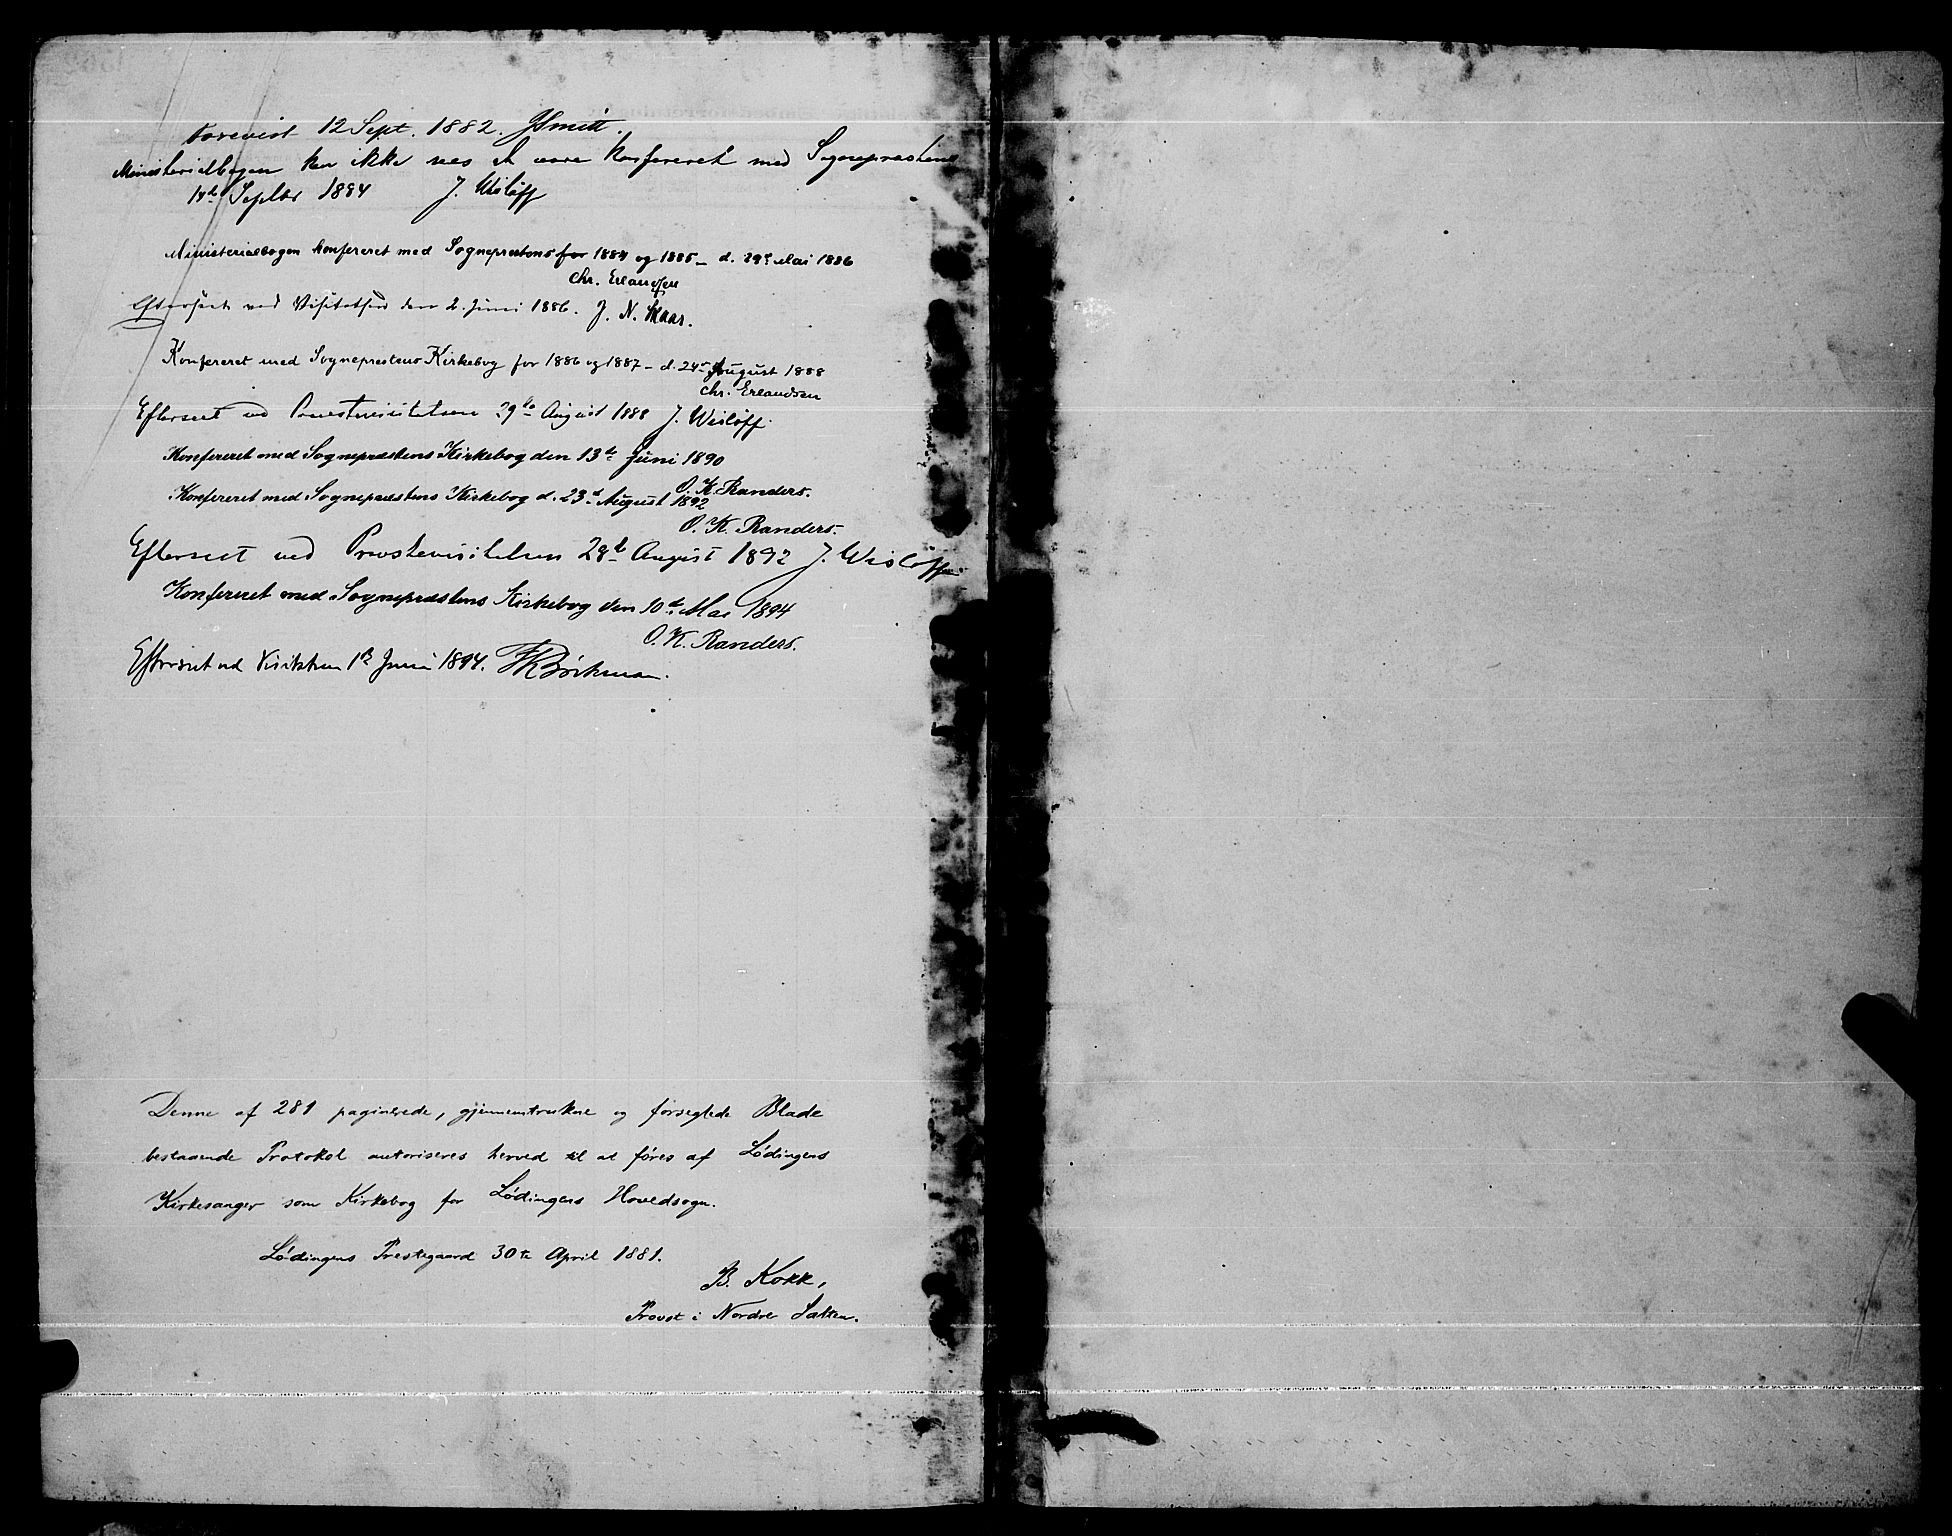 Forevist 12 Sept. 1882. JSmitt.
Ministerialbogen kan ikke sees at være konfereret med Sogneprestens
14de Septbr 1884 J. Wisløff
Ministerialbogen konfereret med Sogneprestens for 1884 og 1885 – d. 29de Mai 1886
Chr. Erlandsen
Efterseet ved Visitatsen den 2. Juni 1886. J. N. Skaar.
Konfereret med Sogneprestens Kirkebog for 1886 og 1887 – d. 24de August 1888
Chr. Erlandsen
Efterseet ved Provstevisitatsen 29de August 1888 J. Wisløff.
Konfereret med Sognepræstens Kirkebog den 13de Juni 1890
O. K. Randers.
Konfereret med Sognepræstens Kirkebog d. 23d August 1892
O. K. Randers.
Efterseet ved Provstevisitatsen 28de August 1892 J. Wisløff.
Konfereret med Sognepræstens Kirkebog den 10de Mai 1894
O. K. Randers.
Efterseet ved Visitatsen 1ste Juni 1894. Bøckman.
Denne af 281 paginerede, gjennemtrukne og forseglede Blade
bestaaende Protokol autoriseres herved til at føres af Lødingens
Kirkesanger som Kirkebog for Lødingens Hovedsogn.
Lødingens Prestegaard 30te April 1881.
B. Kokk,
Provst i Nordre Salten.